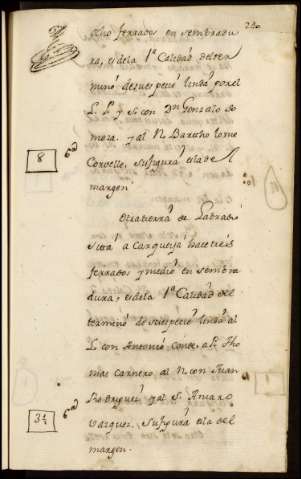 240
ocho ferrados en sembradu
ra, es de la 1ª Calidad del ter
mino de su especie linda por el
L. P. y S. con Dn Gonzalo de
moza. y al N. Bartho lome
Corvelle. Su figura es la de Al
margen
8
Otra tierra de Labradio
Sita a Cargueija hace treis
ferrados y medio en sembra
dura, es de la 1ª Calidad del
termino de su especie linda al
L. con Antonio Conde, a P. Tho
mas Carnero al N. con Juan
Rodriguez y al S. Amaro
Vazquez. Su figura es la del
margen.
3½